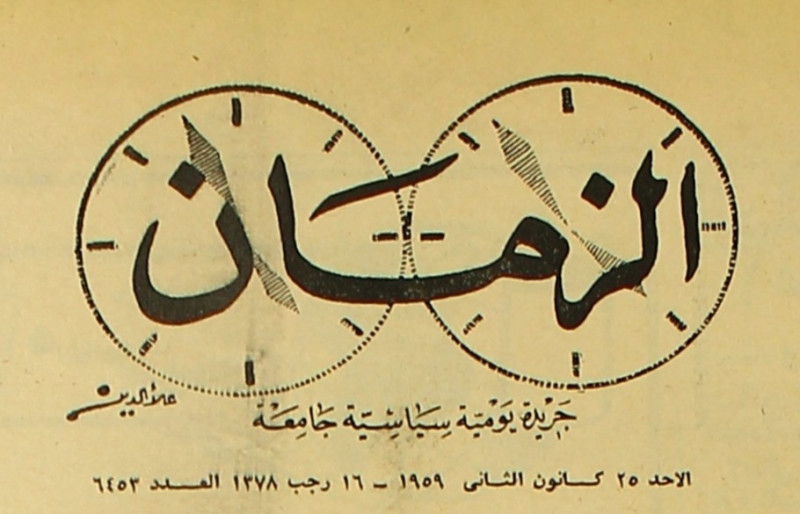 الزمان
علاء الدين
جَرِيدة يَوْميّة سِيَاسِيّة جَامِعَة
الاحد ٢٥ كـانون الثانى ١٩٥٩ - ١٦ رجب ١٣٧٨ العـدد ٦٤٥٣